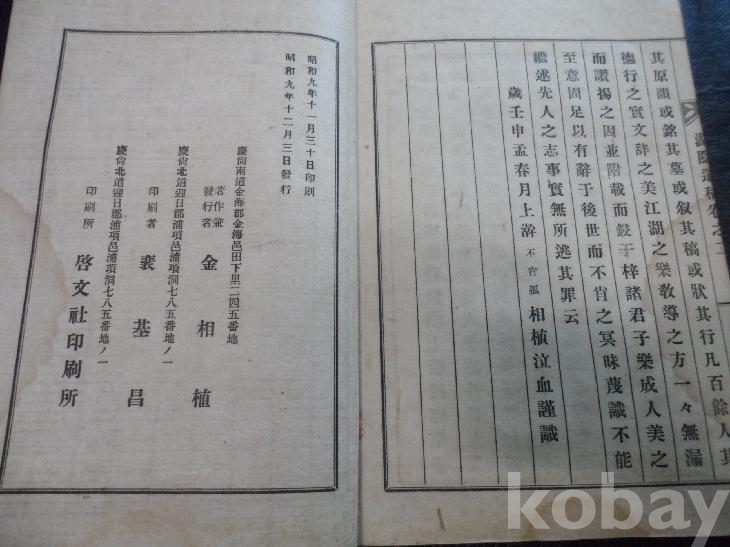 其原韻或銘其墓或叙其稿或狀其行凡百餘人其
德行之實文辞之美江湖之樂敎導之方一々無漏
而讚揚之因並附載而鋟于梓諸君子樂成人美之
至意固足以有辞于後世而不肖之冥昧蔑識不能
繼述先人之志事實無所逃其罪云
歲壬申孟春月上澣 不肖孤 相植泣血謹識
遺稿卷之二
昭和九年十一月三十日印刷
昭和九年十二月三日發行
慶尙南道金海郡金海邑田下里二四五番地
著作兼發行者 金相植
慶尙北道迎日郡浦項邑浦項洞七八五番地ノ一
印刷者 裵基昌
慶尙北道迎日郡浦項邑浦項洞七八五番地ノ一
印刷所 啓文社印刷所
kobay